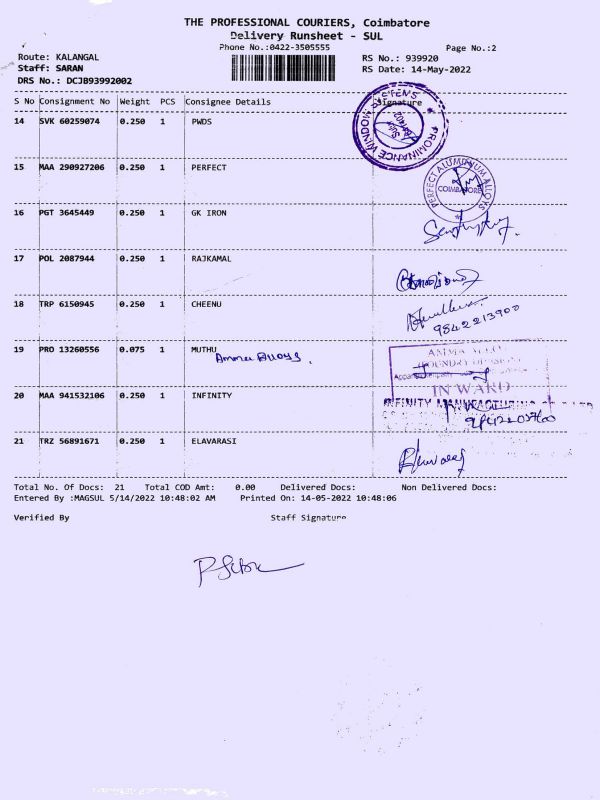 THE PROFESSIONAL COURIERS, Coimbatore
Delivery Runsheet - SUL
Phone No.:0422-3505555
Page No.:2
Route: KALANGAL
RS No.: 939920
Staff: SARAN
RS Date: 14-May-2022
DRS No.: DCJB93992002
S No Consignment No Weight PCS Consignee Details Signature
14 SVK 60259074 0.250 1 PWDS
PROMINANCE WINDOW SYSTEMS
15 MAA 290927206 0.250 1 PERFECT
PERFECT ALUMINIUM ALLOYS
COIMBATORE
16 PGT 3645449 0.250 1 GK IRON
17 POL 2087944 0.250 1 RAJKAMAL
18 TRP 6150945 0.250 1 CHEENU
9842213900
19 PRO 13260556 0.075 1 MUTHU
IN WARD
20 MAA 941532106 0.250 1 INFINITY
INFINITY MANUFACTURING
21 TRZ 56891671 0.250 1 ELAVARASI
Total No. Of Docs: 21 Total COD Amt: 0.00 Delivered Docs: Non Delivered Docs:
Entered By :MAGSUL 5/14/2022 10:48:02 AM Printed On: 14-05-2022 10:48:06
Verified By Staff Signature